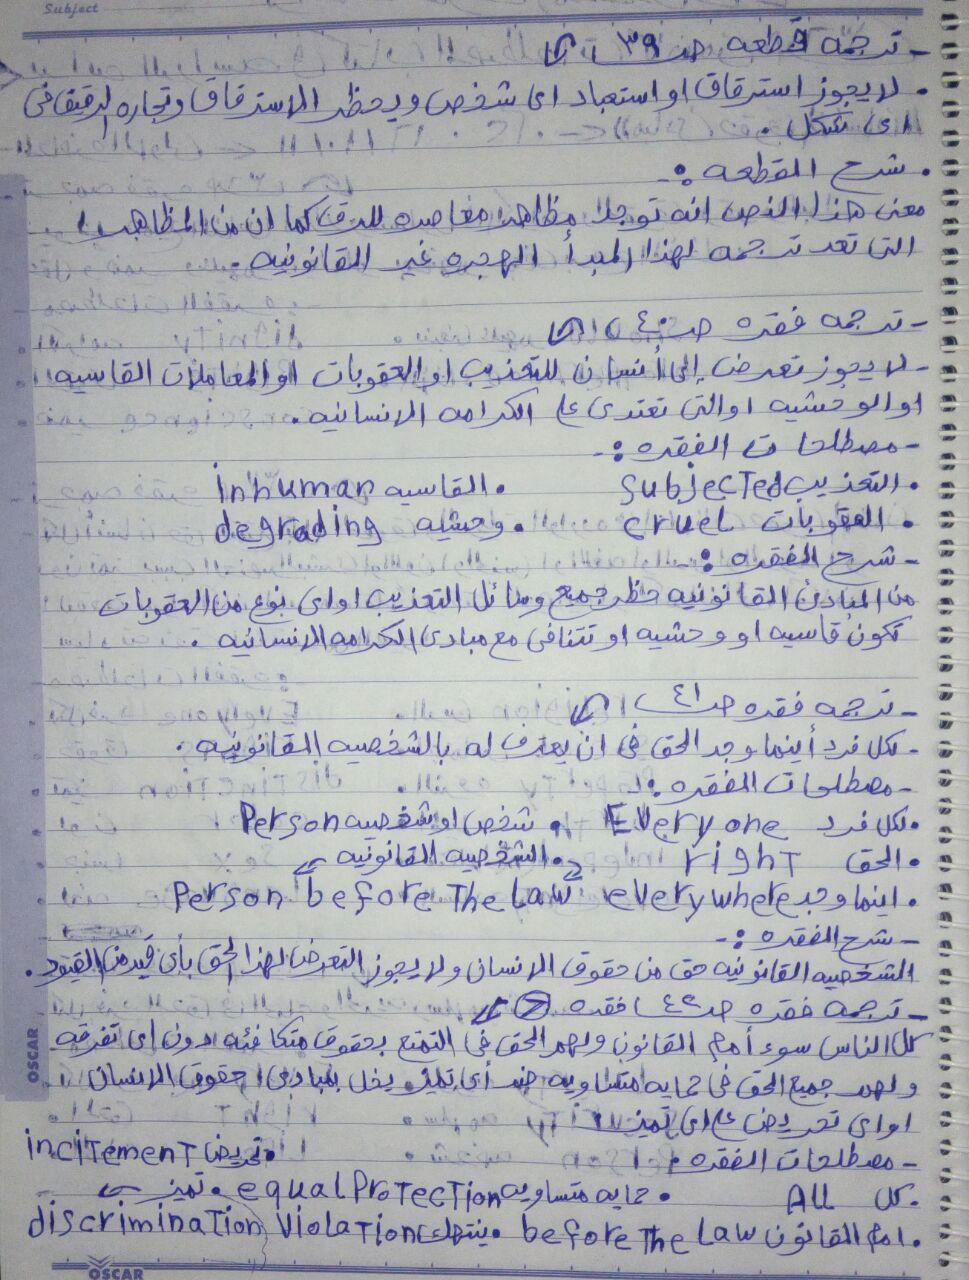 Subject
- ترجمه قطعه صـ ٣٩
. لا يجوز استرقاق او استعباد اى شخص ويحظر الاسترقاق وتجاره الرقيق فى
اى شكل .
. شرح القطعه :-
معنى هذا النص انه توجد مظاهر معاصره للرق كما ان من المظاهر
التى تعد ترجمه لهذا المبدأ الهجره غير القانونيه .
- ترجمه فقره صـ ٤٠
- لا يجوز تعرض إلى أنسان للتعذيب او العقوبات او المعاملات القاسيه
او الوحشيه او التى تعتدى على الكرامه الانسانيه .
- مصطلحات الفقره :-
. التعذيب Subjected . القاسيه inhuman
. العقوبات cruel . وحشيه degrading
- شرح الفقره :-
من المبادئ القانونيه حظر جميع وسائل التعذيب او اى نوع من العقوبات
تكون قاسيه او وحشيه او تتنافى مع مبادئ الكرامه الانسانيه .
- ترجمه فقره صـ ٤١
- لكل فرد أينما وجد الحق فى ان يعترف له بالشخصيه القانونيه .
- مصطلحات الفقره :-
. لكل فرد Every one . شخص او شخصيه Person
. الحق right . الشخصيه القانونيه
. اينما وجد everywhere Person before The Law
- شرح الفقره :-
الشخصيه القانونيه حق من حقوق الانسان ولا يجوز التعرض لهذا الحق بأى قيد من القيود .
- ترجمه فقره صـ ٤٢ فقره
كل الناس سوء أمام القانون ولهم الحق فى التمتع بحقوق متكافئه دون اى تفرقه
ولهم جميع الحق فى حمايه متساويه ضد أى تميز يخل بمبادئ حقوق الانسان
او اى تحريض على اى تميز
- مصطلحات الفقره . تحريض incitement
. كل ALL . حمايه متساويه equal Protection . تميز
. امام القانون before The Law . ينتهك Violation discrimination
OSCAR
OSCAR